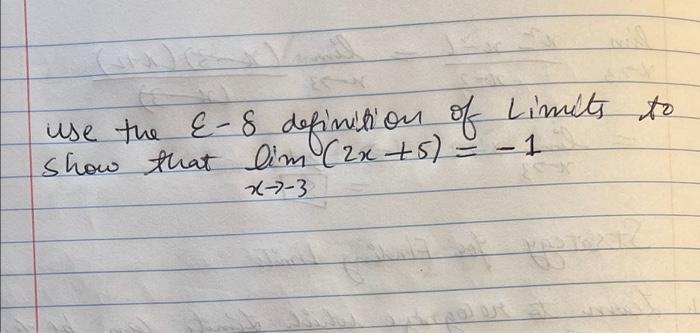 use the ε-δ definition of Limits to
show that lim (2x+5) = -1
x→-3